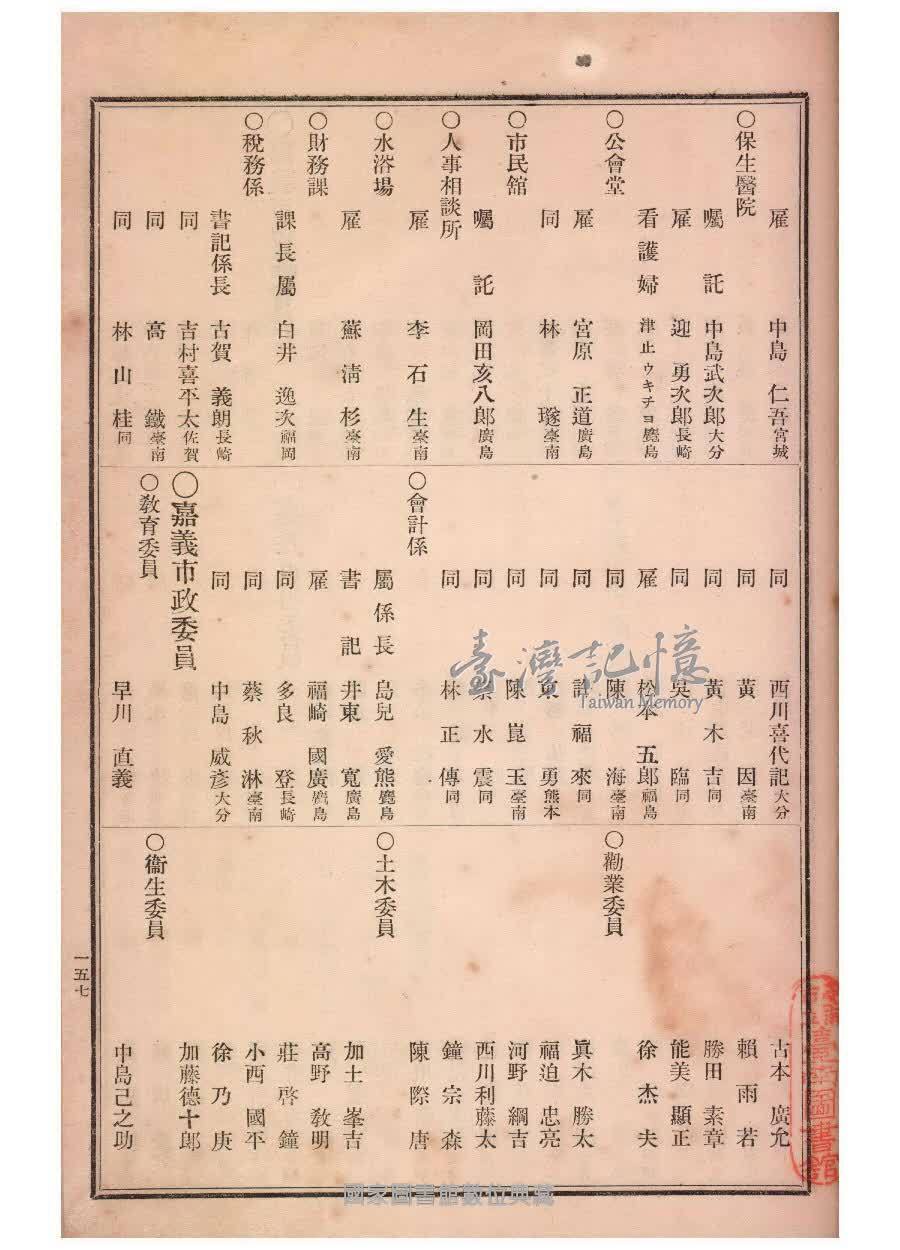 雇 中島 仁吾 宮城
○保生醫院
囑託 中島武次郎 大分
雇 迎 勇次郎 長崎
看護婦 津止ウキチヨ 鹿島
○公會堂
雇 宮原 正道 廣島
同 林 璲 臺南
○市民館
囑託 岡田亥八郎 廣島
○人事相談所
雇 李石生 臺南
○水浴場
雇 蘇淸杉 臺南
○財務課
課長屬 白井 逸次 福岡
○稅務係
書記係長 古賀 義朗 長崎
同 吉村喜平太 佐賀
同 高 鐵 臺南
同 林山桂 同
同 西川喜代記 大分
同 黃 因 臺南
同 黃木吉 同
同 吳 臨 同
雇 松本 五郎 福島
同 陳 海 臺南
同 許福來 同
同 東 勇 熊本
同 陳崑玉 臺南
同 蔡水震 同
同 林正傳 同
○會計係
屬係長 島兒 愛熊 鹿島
書記 井東 寬 廣島
雇 福崎 國廣 鹿島
同 多良 登 長崎
同 蔡秋淋 臺南
同 中島 威彥 大分
○嘉義市政委員
○敎育委員
早川 直義
古本 廣允
賴雨若
勝田 素章
能美 顯正
徐杰夫
○勸業委員
眞木 勝太
福迫 忠亮
河野 綱吉
西川利藤太
鐘宗森
陳際唐
○土木委員
加土 峯吉
高野 敎明
莊啓鐘
小西 國平
徐乃庚
加藤德十郎
○衞生委員
中島己之助
一五七
臺灣記憶
Taiwan Memory
國家圖書館數位典藏